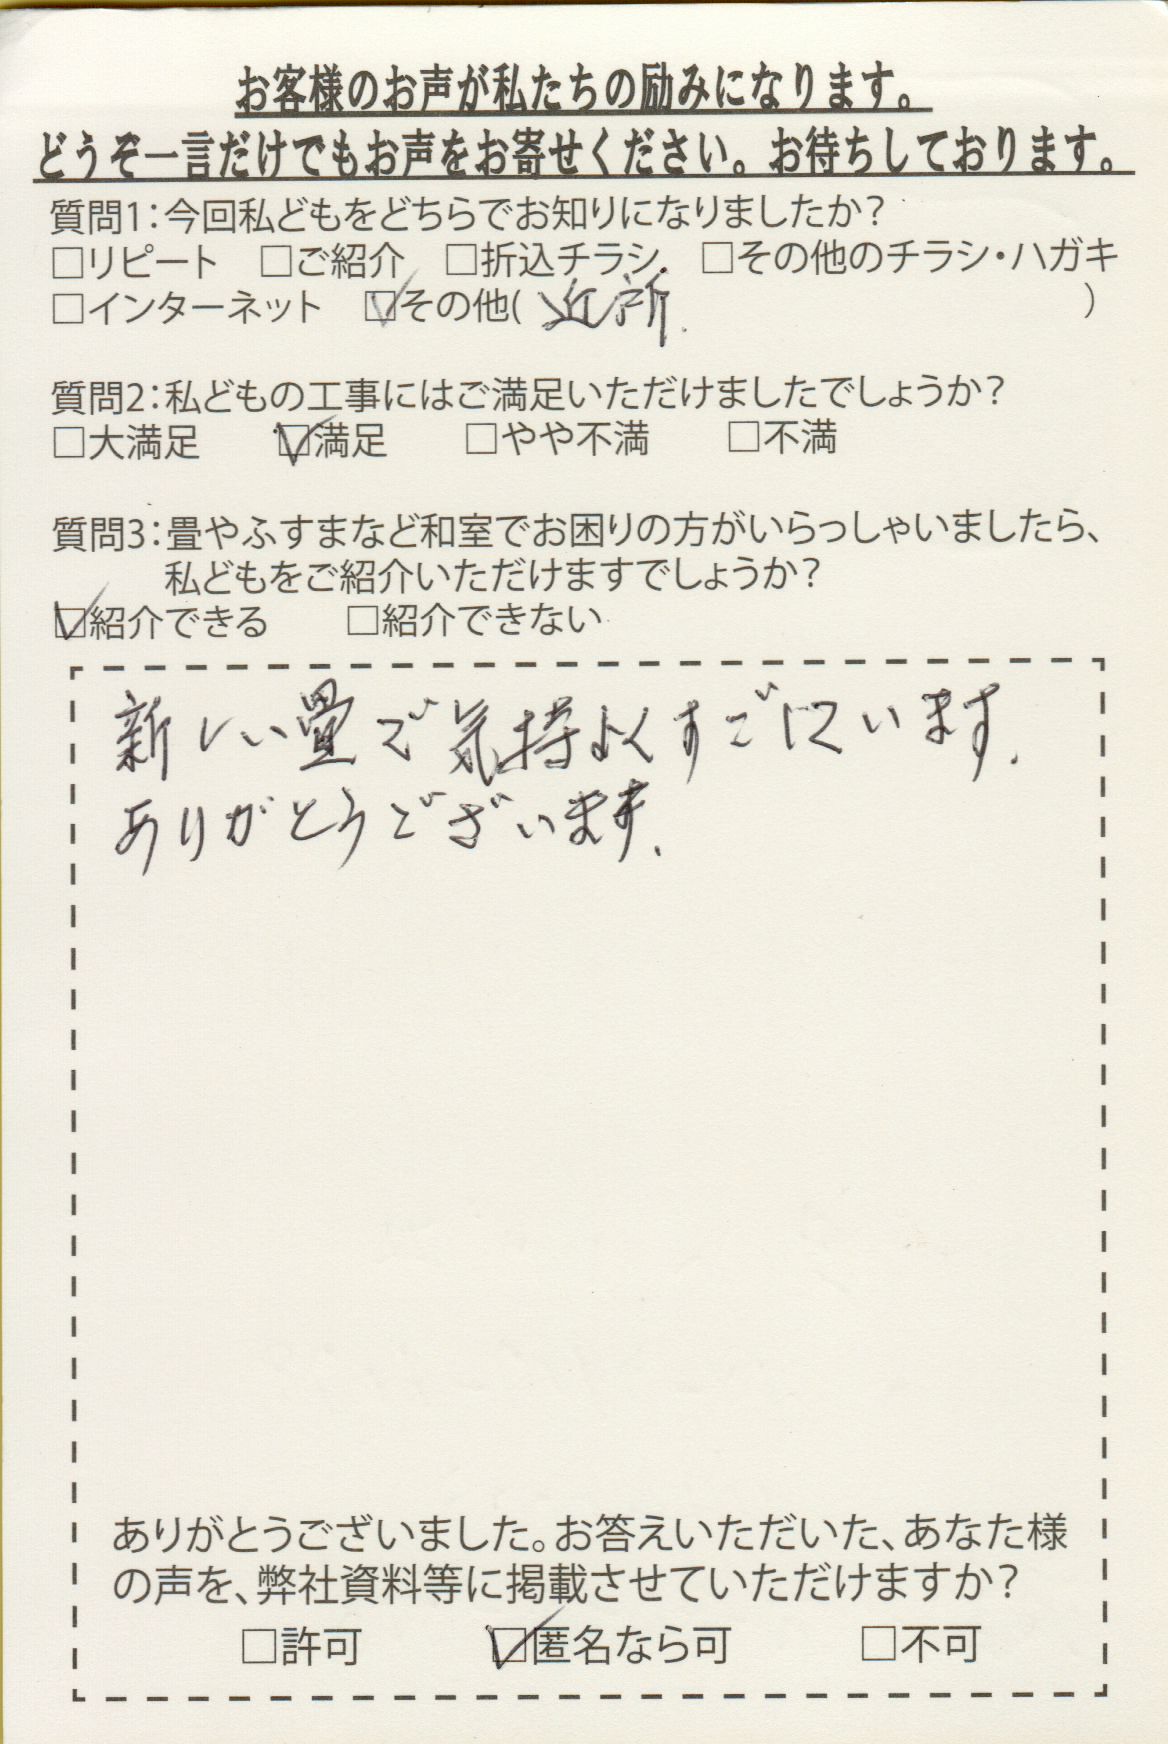 お客様のお声が私たちの励みになります。
どうぞ一言だけでもお声をお寄せください。お待ちしております。
質問1：今回私どもをどちらでお知りになりましたか？
□リピート □ご紹介 □折込チラシ □その他のチラシ・ハガキ
□インターネット ☑その他( 近所. )
質問2：私どもの工事にはご満足いただけましたでしょうか？
□大満足 ☑満足 □やや不満 □不満
質問3：畳やふすまなど和室でお困りの方がいらっしゃいましたら、
私どもをご紹介いただけますでしょうか？
☑紹介できる □紹介できない
新しい畳で気持よくすごしています.
ありがとうございます.
ありがとうございました。お答えいただいた、あなた様
の声を、弊社資料等に掲載させていただけますか？
□許可 ☑匿名なら可 □不可